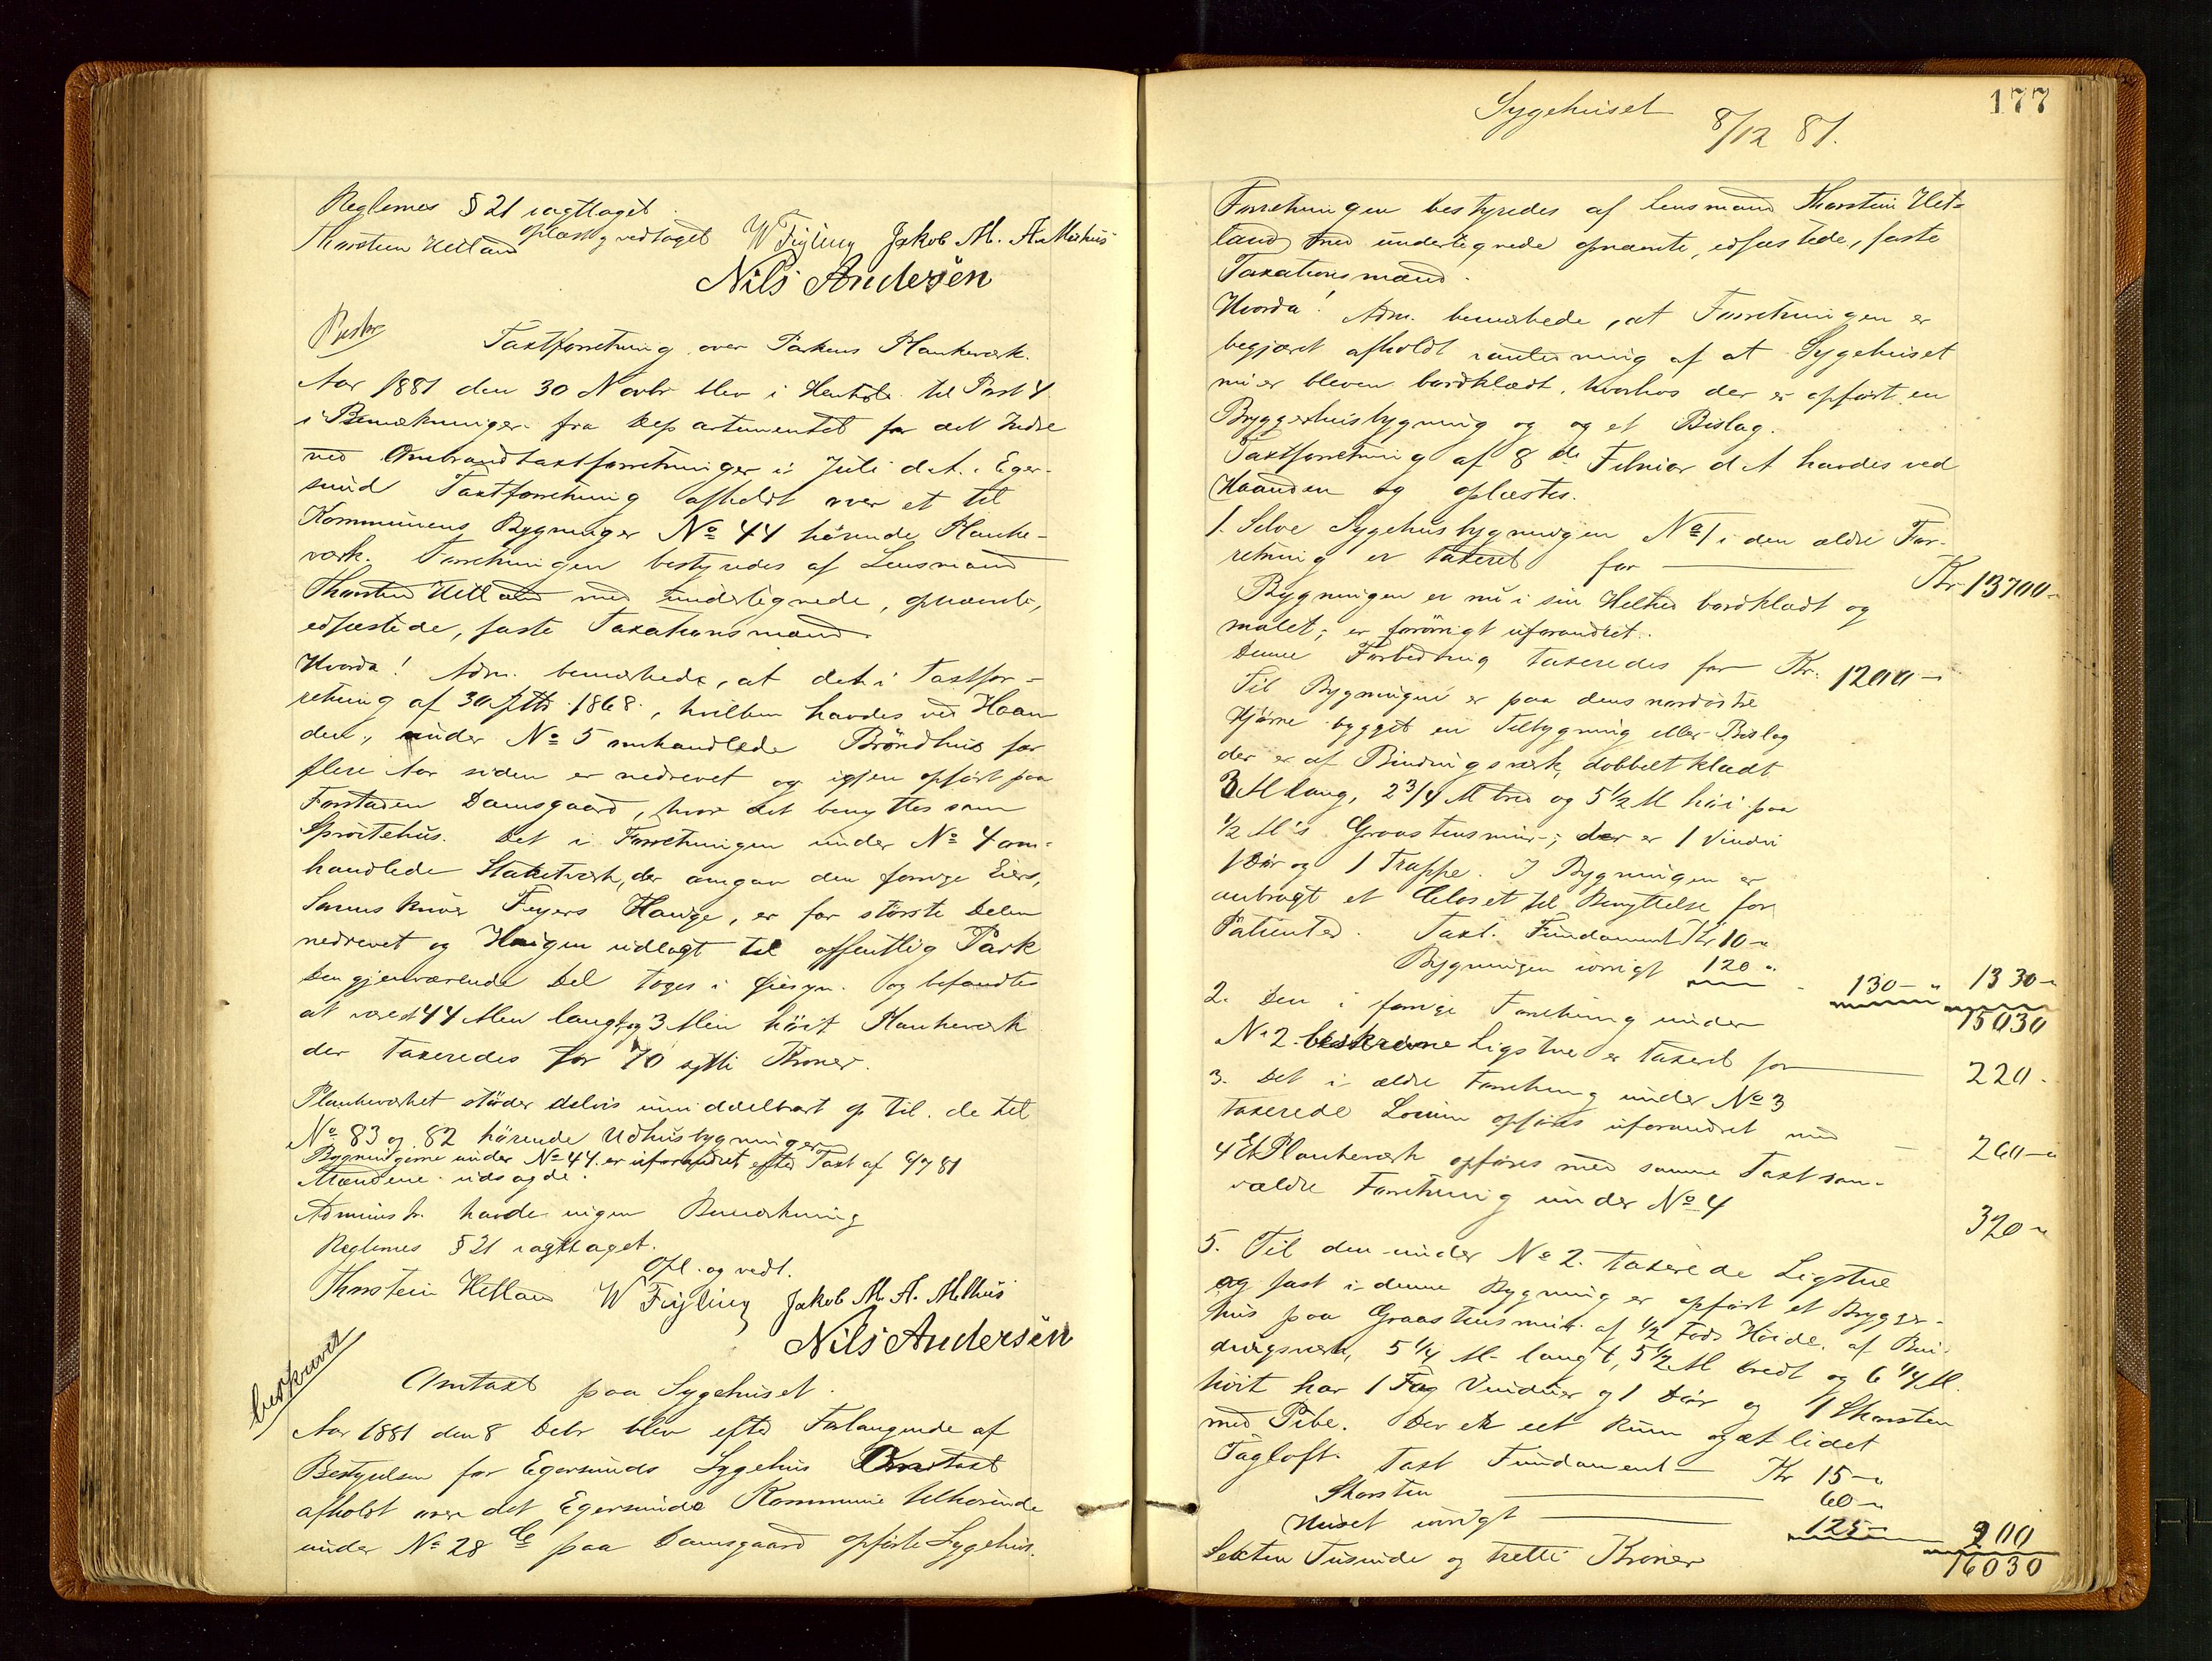 Reglemes § 21 iagttaget.
oplæst og vedtaget
Thorstein Hetland W Feyling Jakob M. A. Melhus
Nils Andersen
Taxtforretning over Parkens Plankeværk.
Aar 1881 den 30 Novbr blev i Henhold til Post 4
i Bemærkninger fra Departementet for det Indre
ved Ombrandtaxtforretninger i Juli d.A. i Eger-
sund Taxtforretning afholdt over et til
Kommunens Bygninger No 44 hörende Planke-
værk. Forretningen bestyredes af Lensmand
Thorstein Hetland med undertegnede, opnævnte,
edfæstede, faste Taxationsmænd.
Hvorda! Adm. bemærkede, at det i Taxtfor-
retning af 30 1868, hvilken havdes ved Haan
den, under No 5 omhandlede Bröndhus for
flere Aar siden er nedrevet og igjen opfört paa
Forstaden Damsgaard, hvor det benyttes som
Spröitehus. Det i Forretningen under No 4 om-
handlede Staketværk, der omgav den forrige Eiers,
Feyers Hauge, er for störste Delen
nedrevet og Haugen udlagt til offentlig Park
Den gjenværende Del toges i Öiesyn og befandtes
at være 44 Alen langt og 3 Alen höit Plankeværk
der taxeredes for 70 sytti Kroner.
Plankeværket stöder delvis umiddelbart op til de til
No 83 og 82 hörende Udhusbygninger
Bygningerne under No 44 er uforandret efter Taxt af 9/7 81
Mændene udsagde.
Administr. havde ingen Bemærkning
Reglemes § 21 iagttaget.
Opl. og vedt.
Thorstein Hetland W Feyling Jakob M. A. Melhus
Nils Andersen
beskrevet
Omtaxt paa Sygehuset.
Aar 1881 den 8 Debr blev efter Forlangende af
Bestyrelsen for Egersunds Sygehus Omtaxt
afholdt over det Egersunds Kommune tilhörende
under No 28 paa Damsgaard opförte Sygehus.
177
Sygehuset
8/12 81.
Forretningen bestyredes af Lensmand Thorstein Het-
land med undertegnede opnævnte, edfæstede, faste
Taxationsmænd.
Hvorda! Adm. bemærkede, at Forretningen er
begjæret afholdt i anledning af at Sygehuset
nu er bleven bordklædt, hvorhos der er opfört en
Bryggerhusbygning og og et Bislag.
Taxtforretning af 8de Februar d A havdes ved
Haanden og oplæstes.
1. Selve Sygehusbygningen No 1 i den ældre For-
retning er taxeret for Kr 13700
Bygningen er nu i sin Helhed bordklædt og
malet; er forövrigt uforandret.
Denne Forbedring taxeredes for Kr. 1200
Til Bygningen er paa dens nordöstre
Hjörne bygget en Tilbygning eller Bislag
der er af Bindingsværk, dobbelt klædt
3 Al lang, 2 3/4 Al bred og 5 1/2 Al höi paa
1/2 Al's Graastensmur; der er 1 Vindu
1 Dör og 1 Trappe. I Bygningen er
anbragt et Closet til Benyttelse for
Patienter. Taxt. Fundament Kr 10
Bygningen iövrigt 120
130 1330
15030
2. Den i forrige Forretning under
No 2 beskrevne Ligstue er taxeret for 220
3. Det i ældre Forretning under No 3
taxerede Locum opföres uforandret med 260
4 Et Plankeværk opföres med samme Taxt som
i ældre Forretning under No 4 320
5. Til den under No 2 taxerede Ligstue
og fast i denne Bygning er opfört et Brygger-
hus paa Graastensmur af 1/2 Fods Höide, af Bin-
dingsværk, 5 1/4 Al langt, 5 1/2 Al bredt og 6 1/4 Al
höit har 1 Fag Vinduer og 1 Dör og 1 Skorsten
med Pibe. Der er eet Rum og et lidet
Tagloft. Taxt Fundament Kr 15
Skorsten 60
Huset iövrigt 125 200
16030
Sexten Tusinde og tretti Kroner